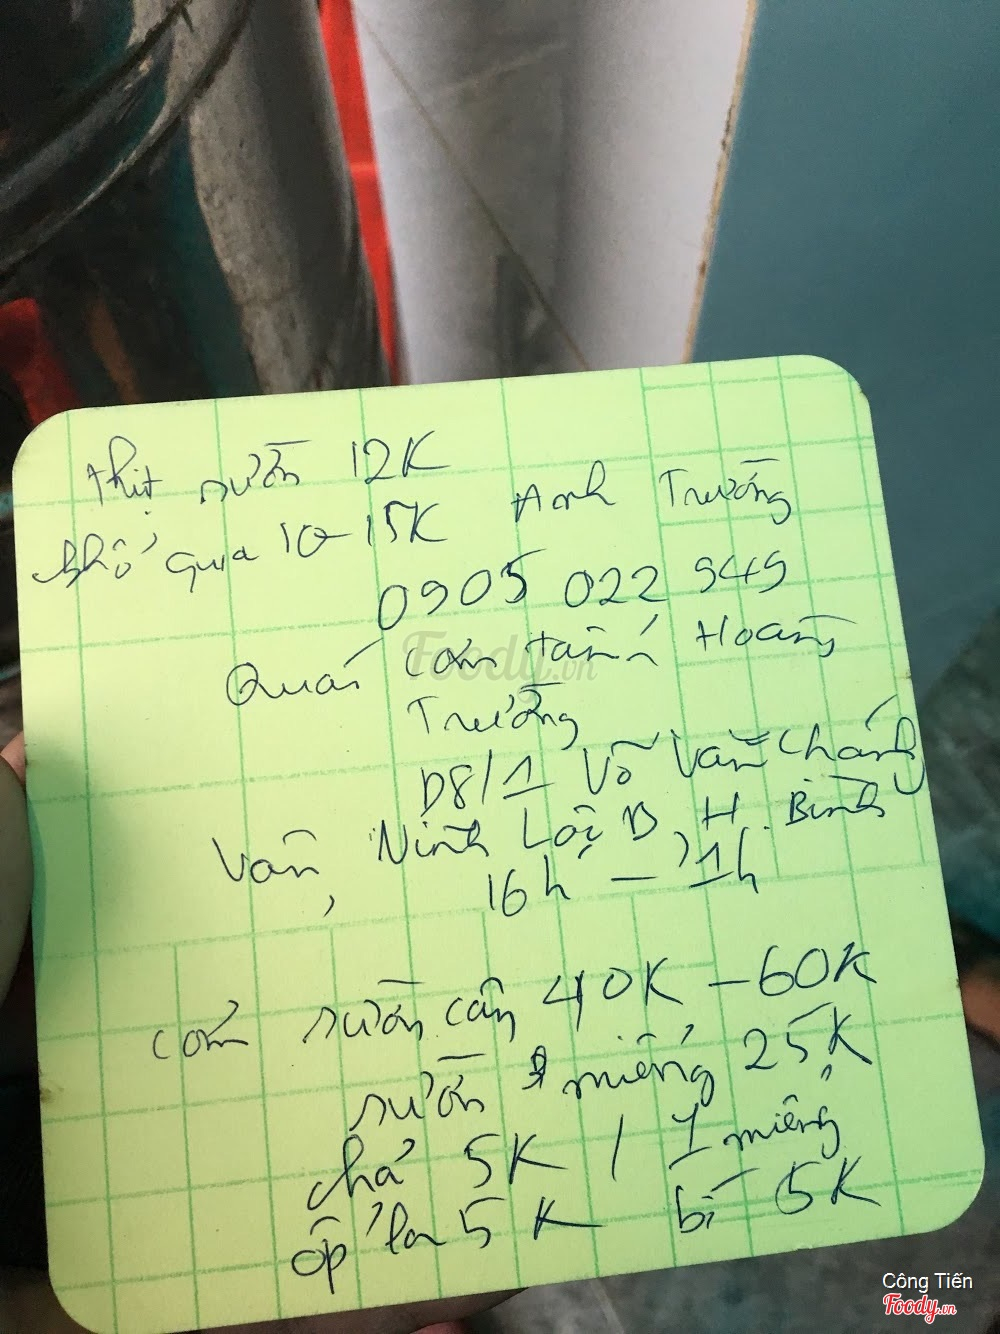 thịt sườn 12K
khổ qua 10-15K
Anh Trường
0905 022 949
Quán Cơm tấm Hoàng
Trường
D8/1 Võ Văn
Vân, Vĩnh Lộc B, H. Bình Chánh
16h - 1h
cơm sườn cây 40K - 60K
sườn miếng 25K
chả 5K / 1 miếng
ốp la 5K bì 5K
Foody.vn
Công Tiến
Foody.vn